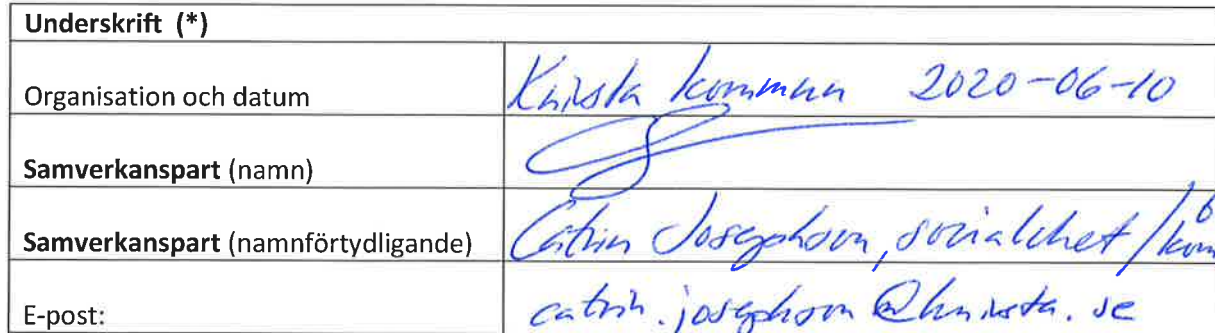 Underskrift (*)
Organisation och datum Knivsta kommun 2020-06-10
Samverkanspart (namn)
Samverkanspart (namnförtydligande) Catrin Josephson, socialchef / kom
E-post: catrin.josephson@knivsta.se